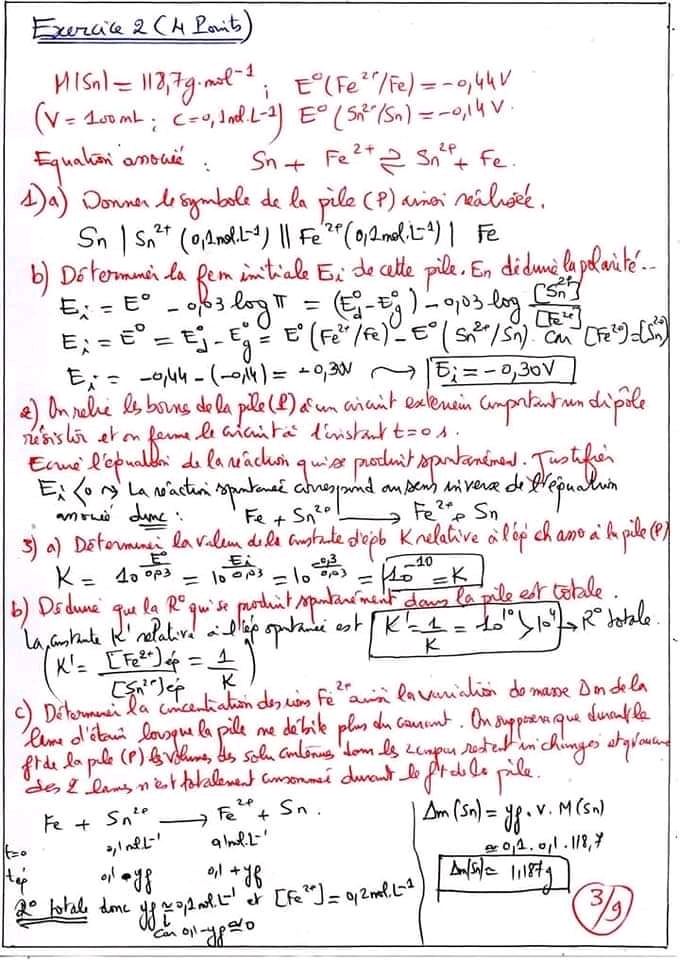 Exercice 2 (4 Points)
M(Sn) = 118,7g.mol⁻¹ ; E°(Fe²⁺/Fe) = -0,44V
(V = 100mL ; C = 0,1mol.L⁻¹) E°(Sn²⁺/Sn) = -0,14V.
Equation associé : Sn + Fe²⁺ ⇌ Sn²⁺ + Fe.
1) a) Donner le symbole de la pile (P) ainsi réalisée.
Sn | Sn²⁺ (0,1mol.L⁻¹) || Fe²⁺ (0,1mol.L⁻¹) | Fe
b) Déterminer la fem initiale Ei de cette pile. En déduire la polarité..
Ei = E° - 0,03 log π = (E°d - E°g) - 0,03 log [Sn²⁺]/[Fe²⁺]
Ei = E° = E°d - E°g = E°(Fe²⁺/Fe) - E°(Sn²⁺/Sn) car [Fe²⁺] = [Sn²⁺]
Ei = -0,44 - (-0,14) = -0,30V ⟿ Ei = -0,30V
2) On relie les bornes de la pile (P) à un circuit extérieur comportant un dipôle
résistor et on ferme le circuit à l'instant t = 0 s.
Ecrire l'équation de la réaction qui se produit spontanément. Justifier
Ei < 0 ⟿ La réaction spontanée correspond au sens inverse de l'équation
associé donc : Fe + Sn²⁺ ⟶ Fe²⁺ + Sn
3) a) Déterminer la valeur de la constante d'eqb K relative à l'éq ch asso à la pile (P)
K = 10^(E°/0,03) = 10^(Ei/0,03) = 10^(-0,3/0,03) = 10⁻¹⁰ = K
b) Déduire que la R° qui se produit spontanément dans la pile est totale.
La constante K' relative à l'éq spontanée est K' = 1/K = 10¹⁰ > 10⁴ → R° totale.
(K' = [Fe²⁺]éq/[Sn²⁺]éq = 1/K)
c) Déterminer la concentration des ions Fe²⁺ ainsi la variation de masse Δm de la
lame d'étain lorsque la pile ne débite plus du courant. On supposera que durant le
ft de la pile (P) les volumes des solu contenues dans les 2 compar restent inchangés et qu'aucune
des 2 lames n'est totalement consommée durant le ft de la pile.
Fe + Sn²⁺ ⟶ Fe²⁺ + Sn.
t=0 0,1mol.L⁻¹ 0,1mol.L⁻¹
t éq 0,1 - yf 0,1 + yf
R° totale donc yf ≃ 0,1mol.L⁻¹ et [Fe²⁺] = 0,2mol.L⁻¹
car 0,1 - yf ≃ 0
Δm(Sn) = yf . V . M(Sn)
≃ 0,1 . 0,1 . 118,7
Δm(Sn) ≃ 1,187g
3/9